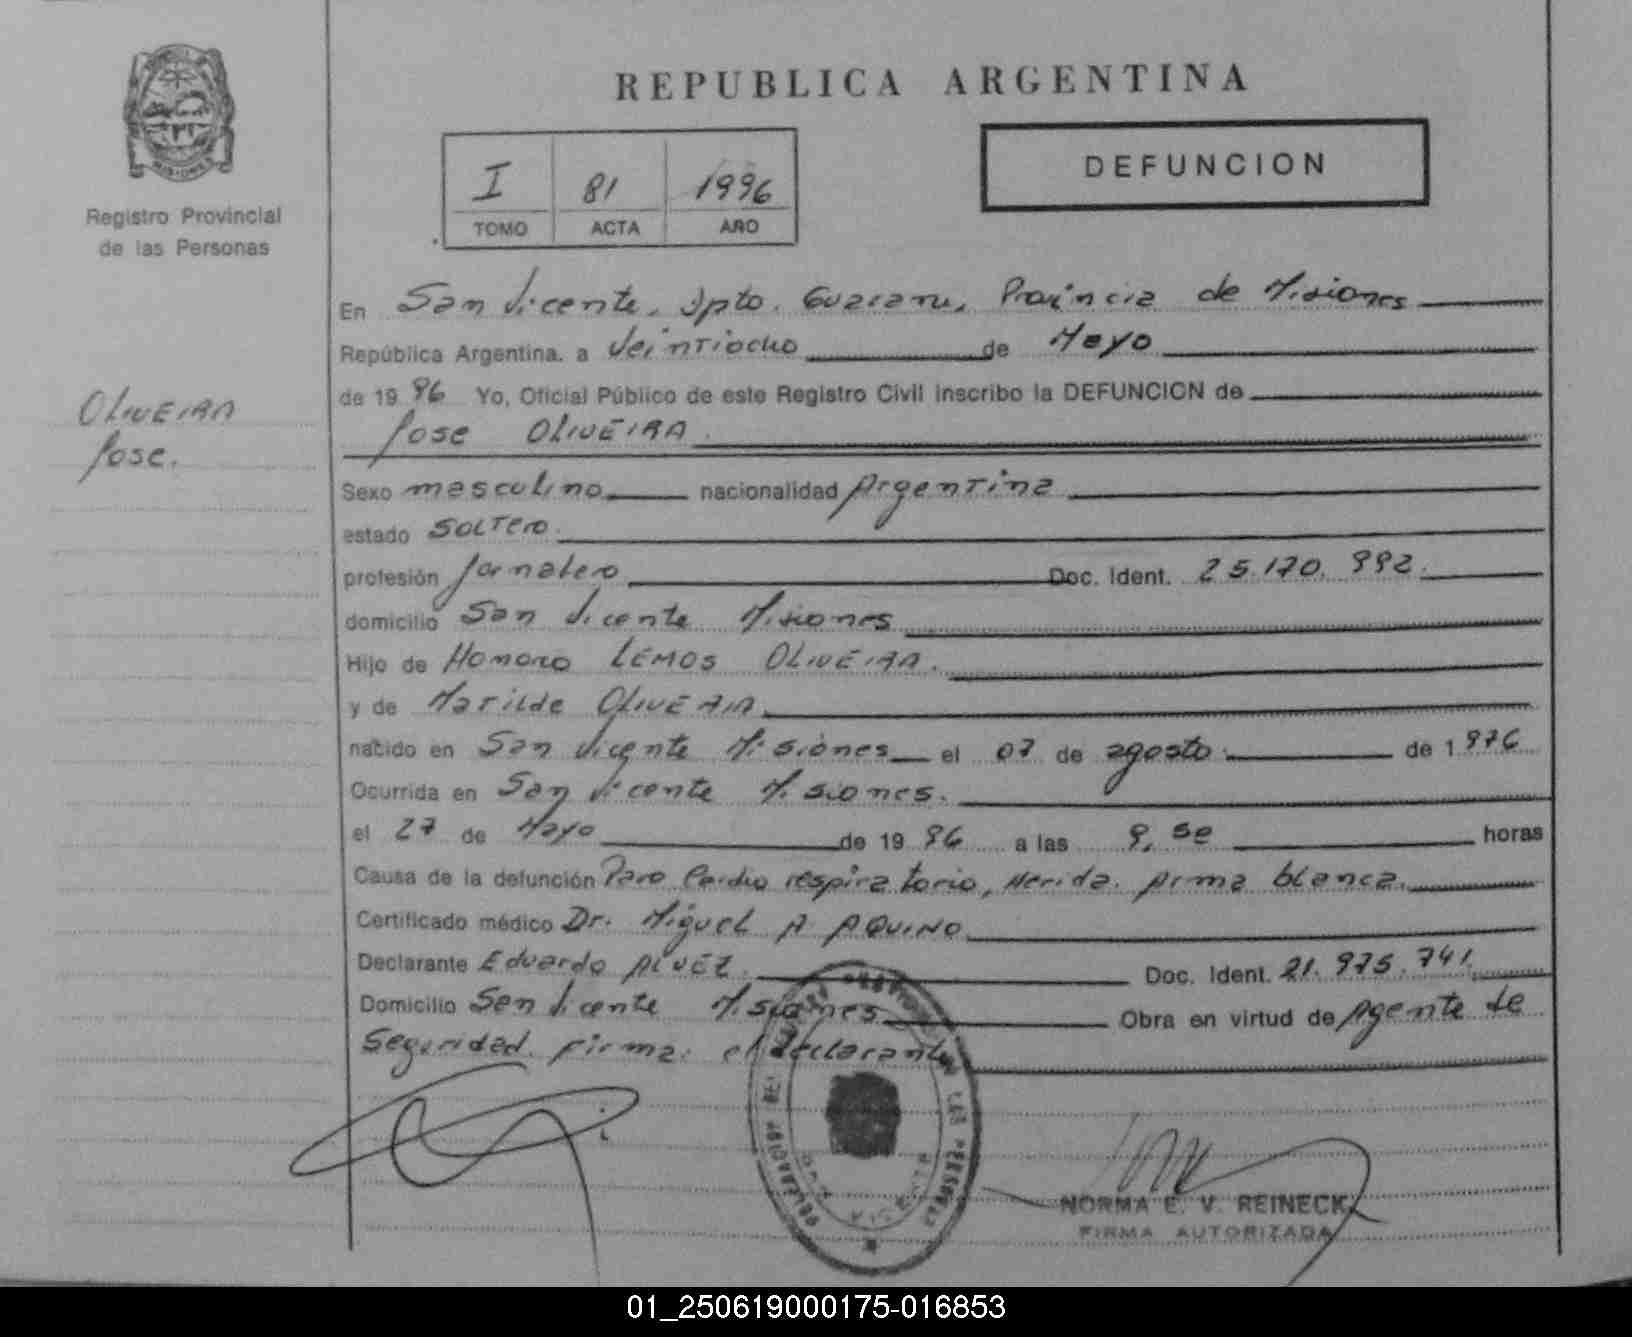 REPUBLICA ARGENTINA
MISIONES
Registro Provincial
de las Personas
I 81 1996
TOMO ACTA AÑO
DEFUNCION
OLIVEIRA
Jose.
En San Vicente, Dpto. Guarani, Provincia de Misiones
República Argentina, a Veintiocho de Mayo
de 1996 Yo, Oficial Público de este Registro Civil inscribo la DEFUNCION de
Jose OLIVEIRA.
Sexo masculino nacionalidad Argentina
estado SOLTERO.
profesión Jornalero Doc. Ident. 25.170.992.
domicilio San Vicente Misiones
Hijo de LEMOS OLIVEIRA.
y de Matilde OLIVEIRA
nacido en San Vicente Misiones el 07 de agosto. de 1976
Ocurrida en San Vicente Misiones.
el 27 de Mayo de 1996 a las horas
Causa de la defunción Paro Cardio respiratorio, Herida. Arma blanca.
Certificado médico Dr. Miguel A AQUINO
Declarante Eduardo ALVEZ. Doc. Ident. 21.975.741.
Domicilio San Vicente Misiones Obra en virtud de Agente de
Seguridad. Firma: el declarante
SAN VICENTE
NORMA E. V. REINECK
FIRMA AUTORIZADA
01_250619000175-016853